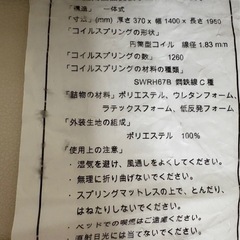 「構造」 一体式
「寸法」(mm) 厚さ 370 x 幅 1400 x 長さ 1950
「コイルスプリングの形状」
円筒型コイル 線径 1.83 mm
「コイルスプリングの数」 1260
「コイルスプリングの材料の種類」
SWRH67B 鋼鉄線C種
「詰物の材料」ポリエステル、ウレタンフォーム、
ラテックスフォーム、低反発フォーム
「外装生地の組成」
ポリエステル 100%
「使用上の注意」
・湿気を避け、風通しをよくしてください。
・無理に折り曲げないでください。
・スプリングマットレスの上で、とんだり、
はねたりしないでください。
・ベッドでの喫煙はご遠慮ください。
・直射日光には当てないでください。